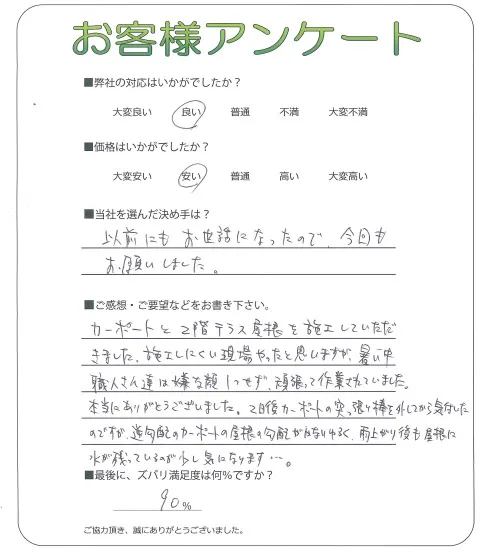 お客様アンケート
■弊社の対応はいかがでしたか?
大変良い 良い 普通 不満 大変不満
■価格はいかがでしたか?
大変安い 安い 普通 高い 大変高い
■当社を選んだ決め手は?
以前にもお世話になったので、今回も
お願いしました。
■ご感想・ご要望などをお書き下さい。
カーポートと2階テラス屋根を施工していただ
きました。施工しにくい現場やったと思いますが、暑い中
職人さん達は嫌な顔1つせず、頑張って作業されていました。
本当にありがとうございました。2日後カーポートの突っ張り棒を外してから気付した
のですが、逆勾配のカーポートの屋根の勾配がかなりゆるく、雨上がり後も屋根に
水が残っているのが少し気になります…。
■最後に、ズバリ満足度は何%ですか?
90%
ご協力頂き、誠にありがとうございました。